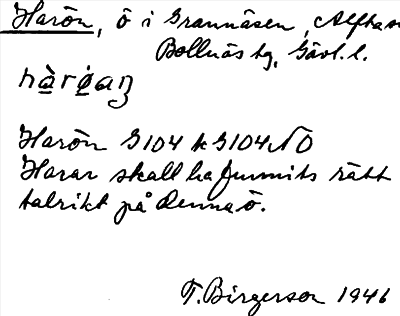 Harön, ö i Grannäsen, Alfta sn
Bollnäs tg, Gävl. l.
hàrø̀aŋ
Harön G104 k G104 NO
Harar skall ha funnits rätt
talrikt på denna ö.
T. Birgerson 1946